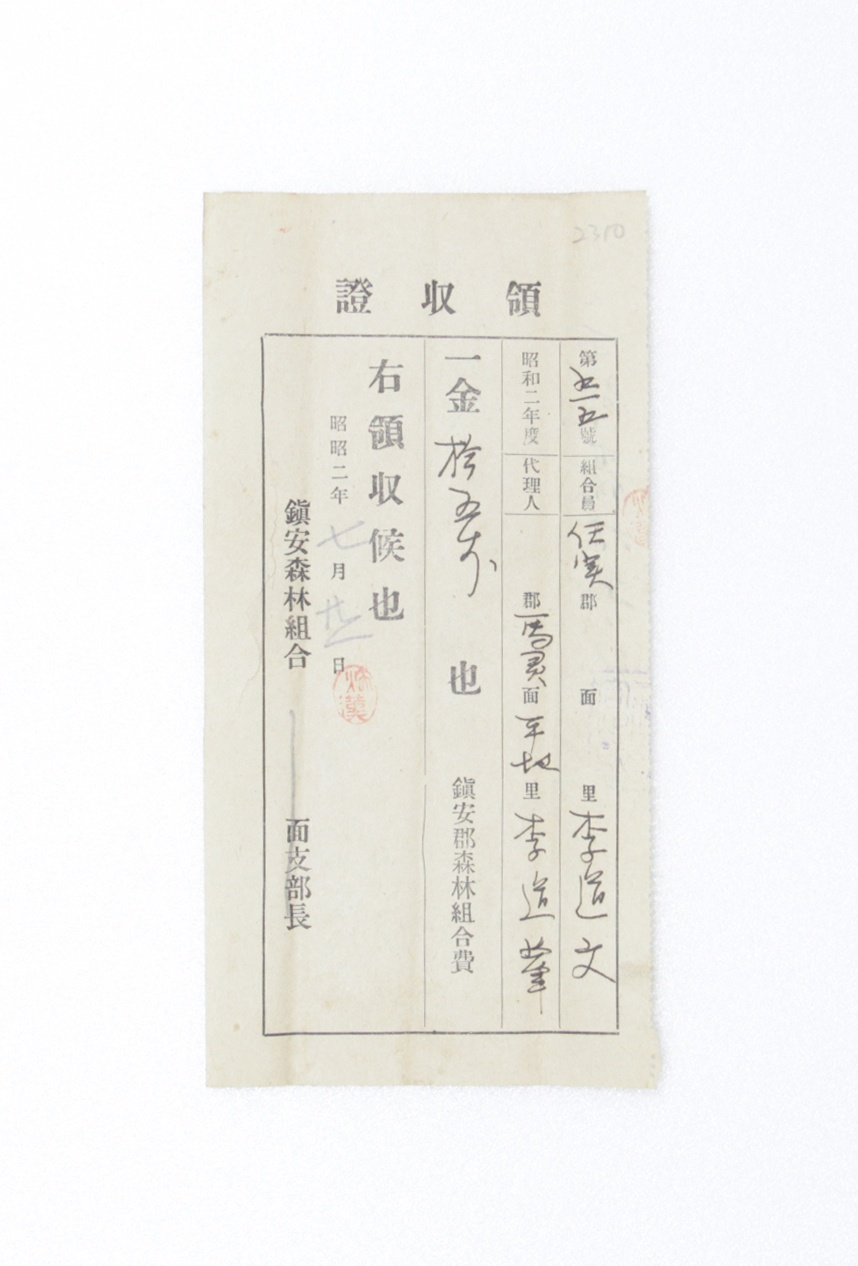 2310
領收證
第五五號 組合員 任実郡 面 里 李道文
昭和二年度 代理人 郡 馬灵面 平地里 李道華
一金 拾五戋 也 鎭安郡森林組合費
右領收候也
昭昭二年七月廿一日
鎭安森林組合 面支部長